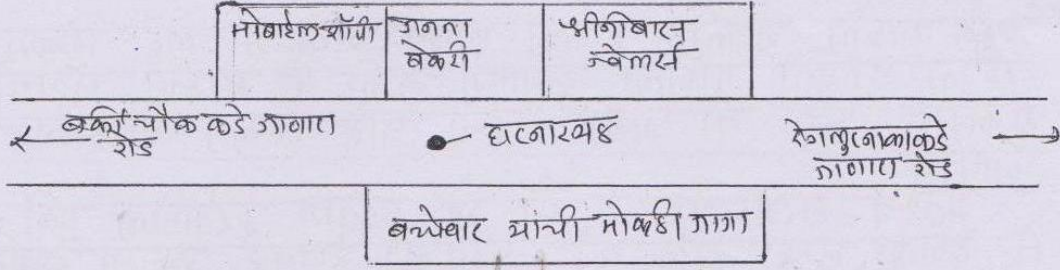 मोबाईल शॉपी
जनता
बेकरी
श्रीनिवास
ज्वेलर्स
बर्की चौक कडे जाणारा
रोड
घटनास्थळ
जाणारा रोड
बच्चेवार यांची मोकळी जागा